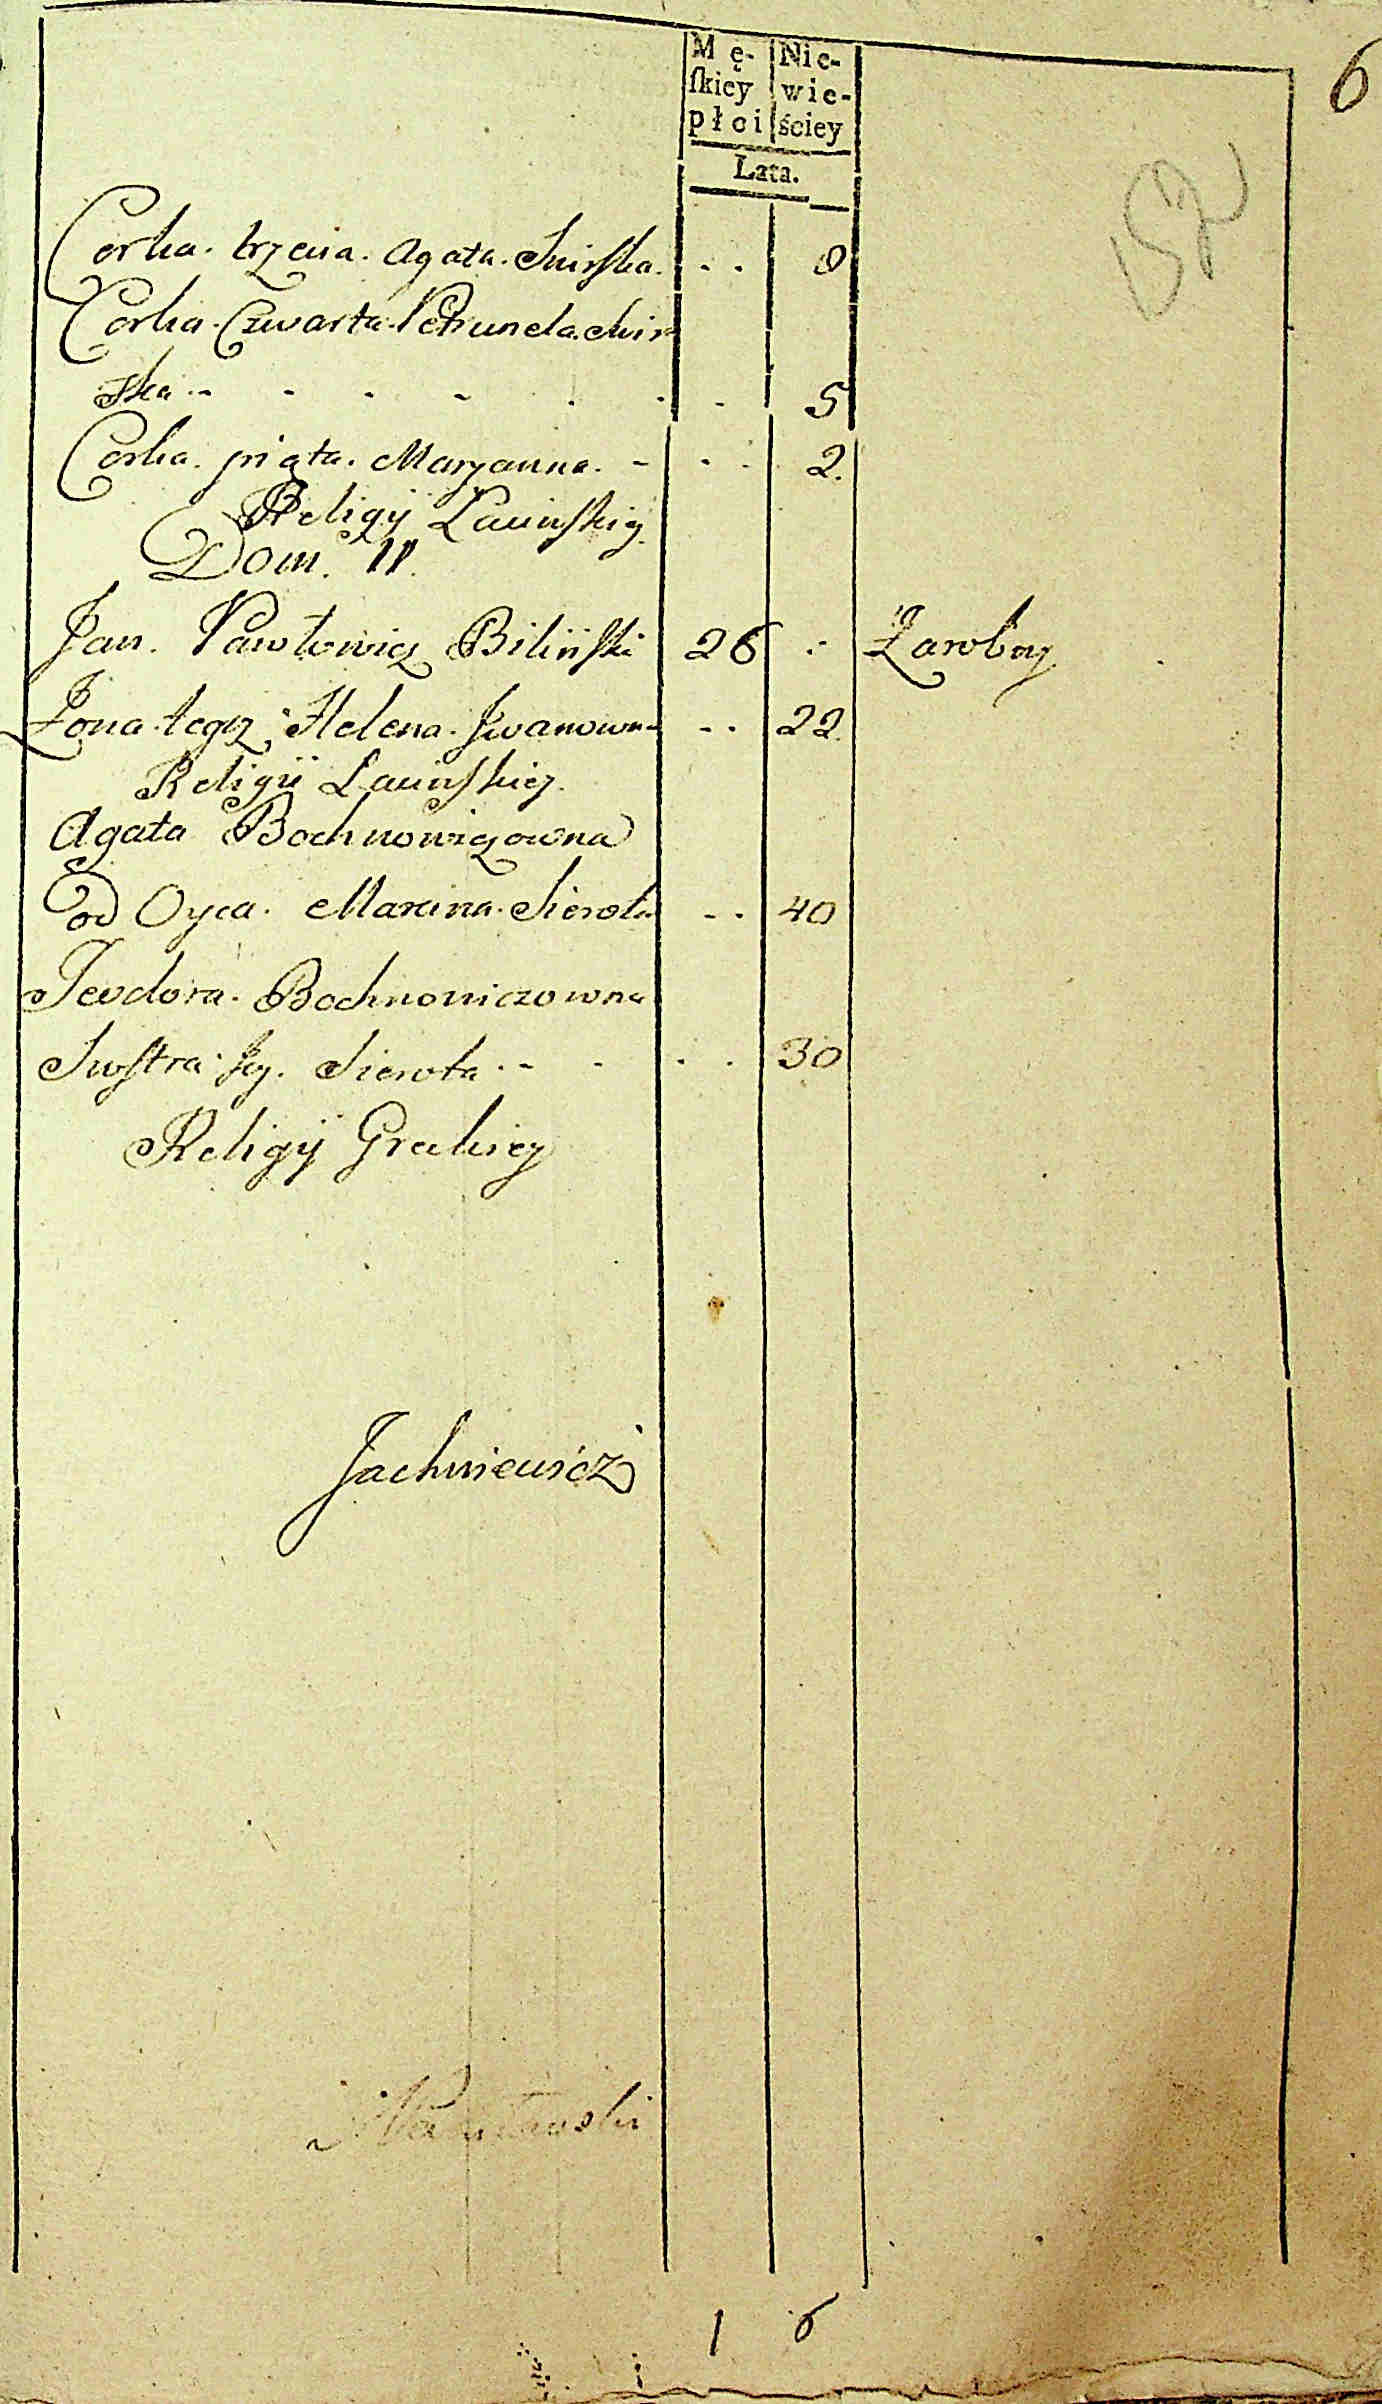 6
Mę- Nie-
ſkiey wie-
płci ściey
Lata.
52
Corka. trzecia. Agata. Snirska. . . 8
Corka. Czwarta. Petrunela. Snir
ska - - - - . . . 5
Corka. piąta. Maryanna. - . . 2.
Religij Łacinskiey.
Dom. 11.
Jan. Pawłowicz Biliński 26 . . Zarobny
Żona tegoż Helena. Jwanowna . . 22.
Religii Łacinskiey.
Agata Bochnowiczowna
od Oyca. Marcina. Sierota . . 40
Teodora. Bochnowiczowna
Siostra Jey. Sierota . - - . . 30
Religij Greckiey
Jachniewicz
1 6